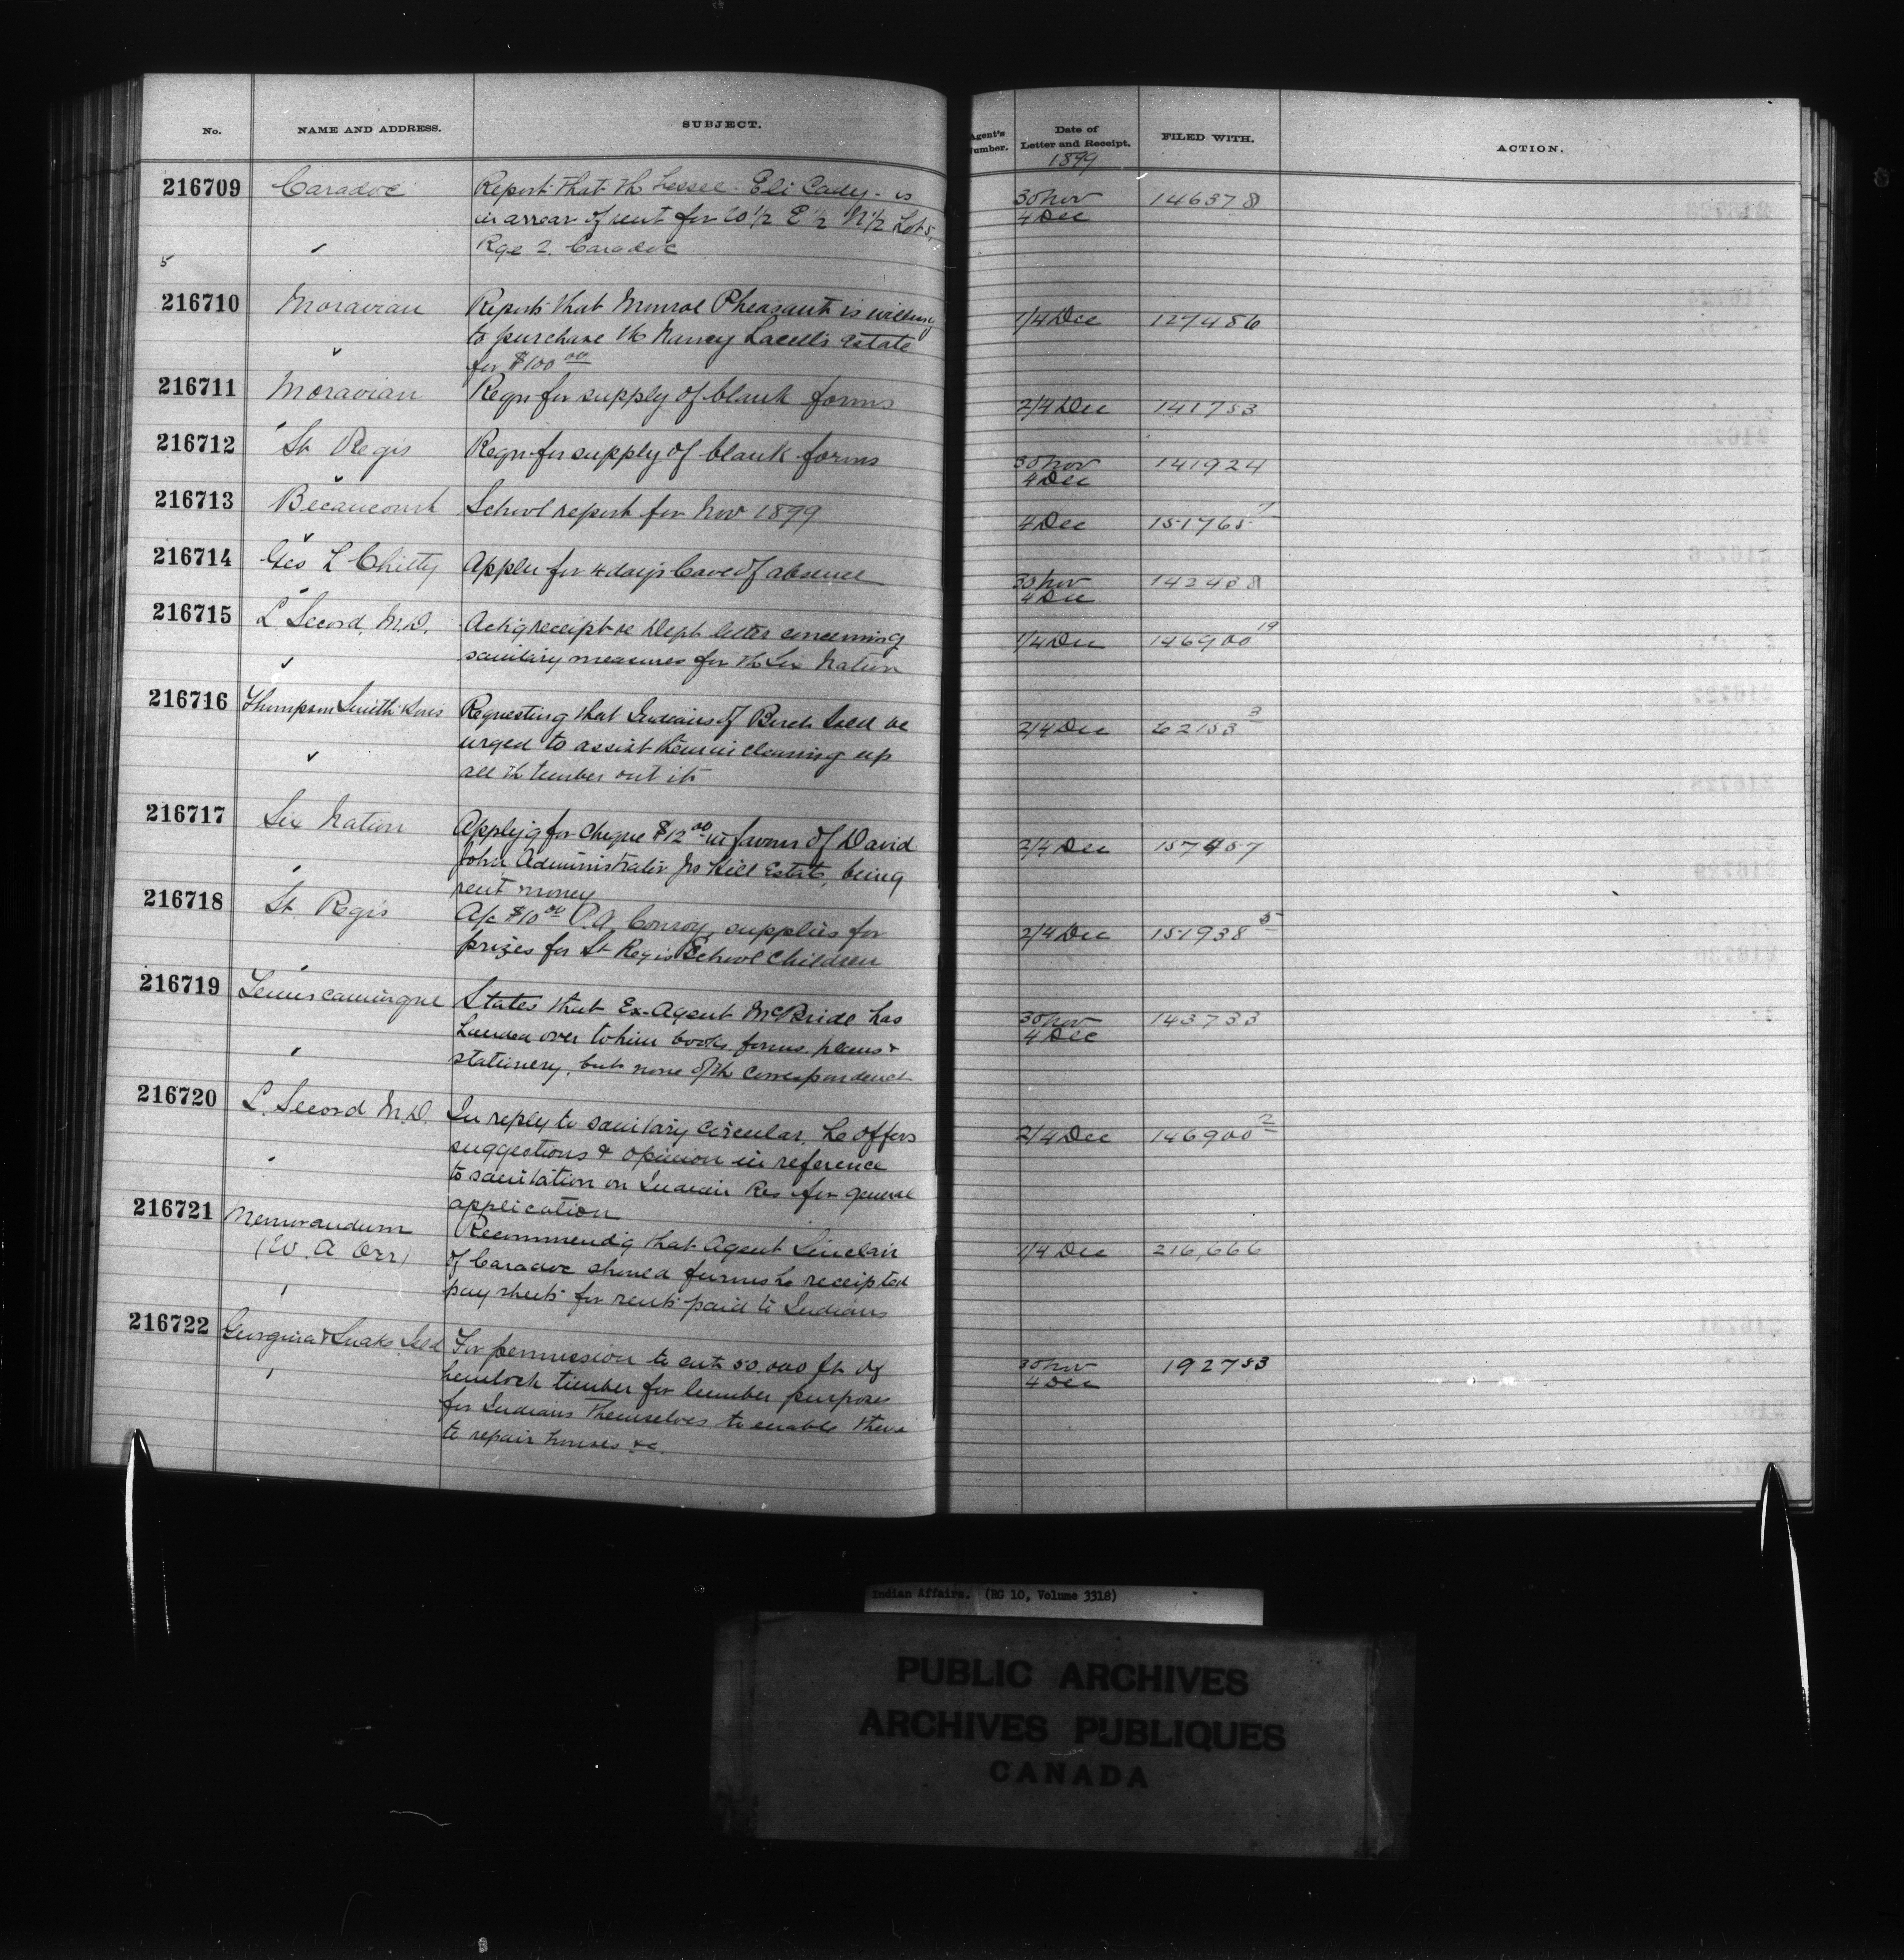 No.
NAME AND ADDRESS.
SUBJECT.
Agent's
Number.
Date of
Letter and Receipt.
1899
FILED WITH.
ACTION.
216709
Caradoc
Report that th Lessee - Eli Cady - is
in arrear of rent for W 1/2 E 1/2 N 1/2 Lot 5,
Rge 2. Caradoc
30 Nov
4 Dec
146378
5
216710
Moravian
Reports that Monroe Pheasant is willing
to purchase th Nancy Estate
for $100 00
1/4 Dec
127486
216711
Moravian
Reqn for supply of blank forms
2/4 Dec
141753
216712
St Regis
Reqn for supply of blank forms
30 Nov
4 Dec
141924
216713
Becancourt
School report for Nov 1899
4 Dec
151765
216714
Geo L Chitty
Applies for 4 days leave of absence
30 Nov
4 Dec
142408
216715
L Secord, M.D.
Ackg receipt re Dept letter concerning
sanitary measures for th Six Nation
1/4 Dec
146900 19
216716
Thompson Smith Sons
Requesting that Indians of Birch Isld be
urged to assist them in cleaning up
all th timber cut etc
2/4 Dec
62153 3
216717
Six Nation
Applyg for cheque $12 00 in favour of David
John, Administrator Jno Hill Estate, being
rent money
2/4 Dec
157457
216718
St. Regis
A/c $10 00 P.A. Conroy, supplies for
prizes for St Regis School Children
2/4 Dec
151938 5
216719
Temiscamingue
States that Ex-Agent McBride has
handed over to him books, forms, plans &
stationery, but none of th correspondence
30 Nov
4 Dec
143733
216720
L. Secord M.D.
In reply to sanitary circular, he offers
suggestions & opinion in reference
to sanitation on Indian Res for general
application
2/4 Dec
146900 2
216721
Memorandum
(W. A Orr)
Recommendg that Agent Sinclair
of Caradoc should furnish receipted
pay sheets for rents paid to Indians
1/4 Dec
216,666
216722
Georgina & Snake Isld
For permission to cut 50.000 ft of
hemlock timber for lumber purposes
for Indians themselves to enable them
to repair houses &c.
30 Nov
4 Dec
192753
Indian Affairs. (RG 10, Volume 3318)
PUBLIC ARCHIVES
ARCHIVES PUBLIQUES
CANADA